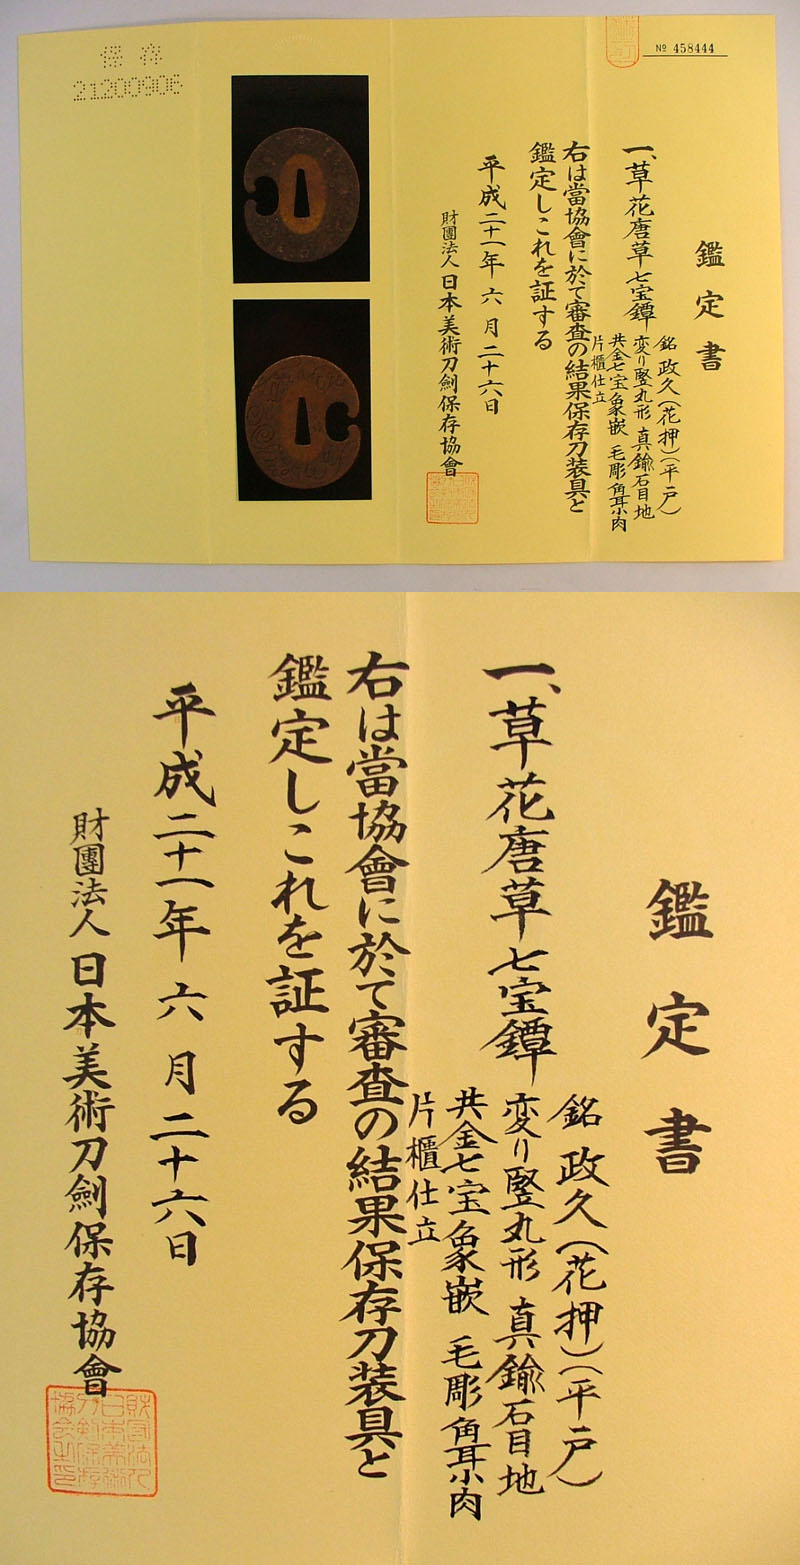 保存
21200906
№ 458444
鑑定書
一、草花唐草七宝鐔
銘 政久(花押)(平戸)
変り竪丸形 真鍮石目地
共金七宝象嵌 毛彫 角耳小肉
片櫃仕立
右は當協會に於て審査の結果保存刀装具と
鑑定しこれを証する
平成二十一年 六月二十六日
財團法人 日本美術刀劍保存協會
鑑定書
一、草花唐草七宝鐔
銘 政久(花押)(平戸)
変り竪丸形 真鍮石目地
共金七宝象嵌 毛彫 角耳小肉
片櫃仕立
右は當協會に於て審査の結果保存刀装具と
鑑定しこれを証する
平成二十一年 六月二十六日
財團法人 日本美術刀劍保存協會